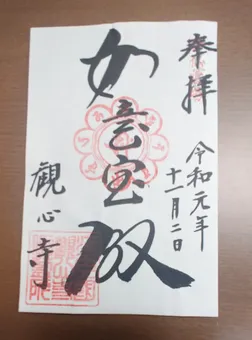 奉拝
令和元年
十一月二日
如意宝殿
観心寺